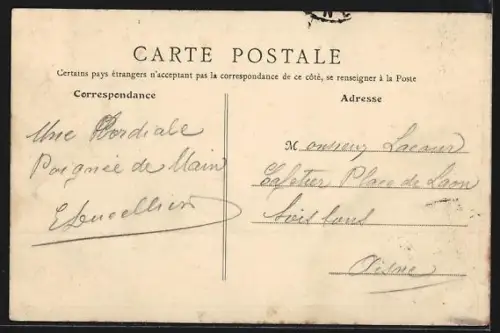 CARTE POSTALE
Certains pays étrangers n'acceptant pas la correspondance de ce côté, se renseigner à la Poste
Correspondance
Adresse
Une Cordiale
Poignée de Main
Monsieur Lacour
Cafetier Place de Laon
Soissons
Aisne